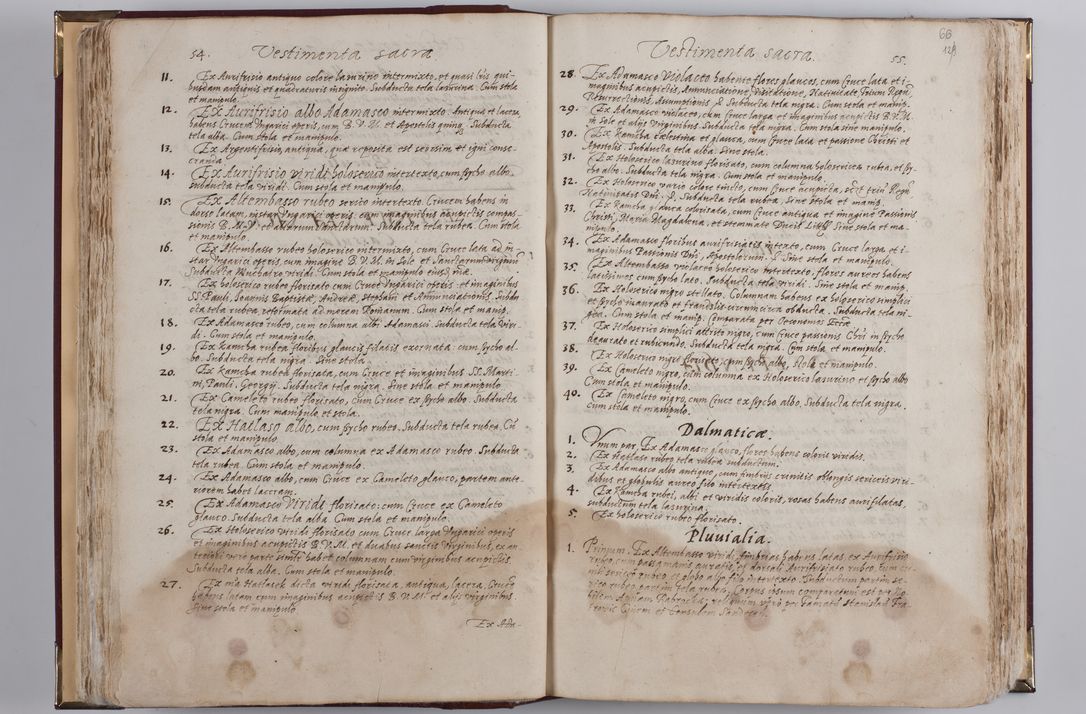 54. Vestimenta sacra.
11. Ex Aurifrisio antiquo colore lasurino intermixto, et quasi Iris qui-
busdam antiquis et quadraturis insignito. Subducta tela lasurina. Cum stola
et manipulo.
12. Ex Aurifrisio albo Adamasco intermixto. Antiqua et lacera,
habens Crucem Ungarici operis, cum B.V.M. et Apostolis quinq. Subducta
tela alba. Cum stola et manipulo.
13. Ex Argentifrisio, antiqua, quæ reposita est seorsim, et igni conse-
cranda.
14. Ex Aurifrisio viridi holoserico intertexto, cum psycho albo.
subducta tela viridi. Cum stola et manipulo.
15. Ex Altembasso rubeo serico intertexto. Crucem habens in
dorso latam, instar Ungarici operis, cum imaginibus acupictis compas-
sionis B.M.V. et aliarum Sanctarum. Subducta tela rubea. Cum stola
et manipulo.
16. Ex Altembasso rubeo holoserico intermixto, cum Cruce lata ad in-
star Ungarici operis, cum imagine B.V.M. in Sole et Sanctarum Virginum
Subducta Muchadro viridi. Cum stola et manipulo eiusd. mæ.
17. Ex holoserico rubeo florisato cum Cruce Ungarici operis et imaginibus
SS. Pauli, Joannis Baptistæ, Andreæ, Stephani et Annunciationis. Subdu
cta tela rubea, reformata ad morem Romanum. Cum stola et manip.
18. Ex Adamasco rubeo, cum columna albi Adamasci. Subducta tela viri-
di. Cum stola et manipulo.
19. Ex kamcha rubea floribus glaucis filatis exornata. cum psycho al-
bo. Subducta tela nigra. Sine stola.
20. Ex kamcha rubea florisata, cum Cruce et imaginibus SS. Marti-
ni, Pauli, Georgij. Subducta tela nigra. Sine stola et manipulo
21. Ex Cameleto rubeo florisato, cum Cruce ex psycho albo. Subducta
tela nigra. Cum manipulo et stola.
22. Ex Hatlaso albo, cum psycho rubeo. Subducta tela rubea. Cū
stola et manipulo.
23. Ex Adamasco albo, cum columna ex Adamasco rubeo. Subducta
tela rubea. Cum stola et manipulo.
24. Ex Adamasco albo, cum Cruce ex Cameleto glauco, partem ante-
riorem habet laceram.
25. Ex Adamasco Viridi florisato: cum Cruce ex Cameleto
glauco. Subducta tela alba. Cum stola et manipulo.
26. Ex Holoserico viridi florisato cum Cruce larga Ungarici operis
et imaginibus acupictis B.V.M. et duabus sanctis Virginibus, ex an-
teriori verò parte simtr habet columnam cum virginibus acupictis.
Subducta tela alba. Cum stola et manipulo.
27. Ex mā Hatlasek dicta viridi florisata, antiqua, lacera, Cruce
habens latam cum imaginibus acupictis B.V.M. et alijs virginibus.
Sine stola et manipulo.
Ex Ada-
66
Vestimenta sacra. 55.
28. Ex Adamasco violaceo habente flores glaucos, cum Cruce lata et i-
maginibus acupictis, Annunciatione, Visitatione, Nativitate, Trium Regū
Resurrectionis, Assumptionis. Subducta tela nigra. Cum stola et manip.
29. Ex Adamasco violaceo, cum Cruce larga et imaginibus acupictis B.V.M.
in Sole et alijs Virginibus. Subducta tela nigra. Cum stola sine manipulo.
30. Ex kamcha cælestina et glauca, cum Cruce lata et passione Christi et
Apostolis. Subducta tela alba. Sine stola.
31. Ex Holoserico lasurino florisato, cum columna holoserica rubea, et psy-
cho albo. Subducta tela nigra. Cum stola et manipulo.
32. Ex Holoserico vario colore tincto, cum Cruce acupicta, scct trin Regū
Nativitatis Dni. Subducta tela rubea, Sine stola et manip.
33. Ex kamcha glauca colorisata, cum Cruce antiqua et imagine Passionis
Christi, Maria Magdalena, et stemmate Ducis Litt. Sine stola et ma-
nipulo.
34. Ex Adamasco floribus aurifrisiatis intexto, cum Cruce larga et i-
maginibus Passionis Dni, Apostolorum. Sine stola et manipulo.
35. Ex Altembasso violaceo holoserico intertexto, flores aureos habens
latissimos, cum psycho lato. Subducta tela viridi. Sine stola et manip.
36. Ex Holoserico nigro stellato. Columnam habens ex holoserico simplici
et psycho inaurato et frandzlis circumcirca obducta. Subducta tela ni-
gra. Cum stola et manip. Comparata per Oeconomos Eccæ
37. Ex Holoserico simplici attrito nigro, cum Cruce passionis Chri in psycho
deaurato et rubicundo, Subducta tela nigra. Cum stola et manipulo.
38. Ex Holoserico nigro florisato, cum psycho albo, stola et manipulo.
39. Ex Cameleto nigro, cum columna ex Holoserico lasurino et psycho albo
Cum stola et manipulo.
40. Ex Cameleto nigro, cum Cruce ex psycho albo. Subducta tela nigra.
cum stola et manipulo.
Dalmaticæ.
1. Unum par. Ex Adamasco glauco, flores habens coloris viridis.
2. Ex Hatlaso rubeo tela rubea subductum.
3. Ex Adamasco albo antiquo, cum fimbrijs crinitis oblongis sericeis viri-
dibus et globulis aureo filo intertextis.
4. Ex Kamcha rubei, albi et viridis coloris, rosas habens aurifilatas.
subductum tela lasurina.
5. Ex holoserico rubeo florisato.
Pluuialia.
1. Primum. Ex Altembasso viridi, fimbrias habens latas ex Aurifrisio
rubeo, cum passamanis auratis, et dorsali Aurifrisiato rubeo, cum cri-
nibus sericis rubeis, et globo albo filo intertexto. Subductum partim se-
rico rubeo partim tela rubea. Corpus ipsum comparatum est per No-
bilem Annam reliquum verò per Famatū Stanislaū Fra-